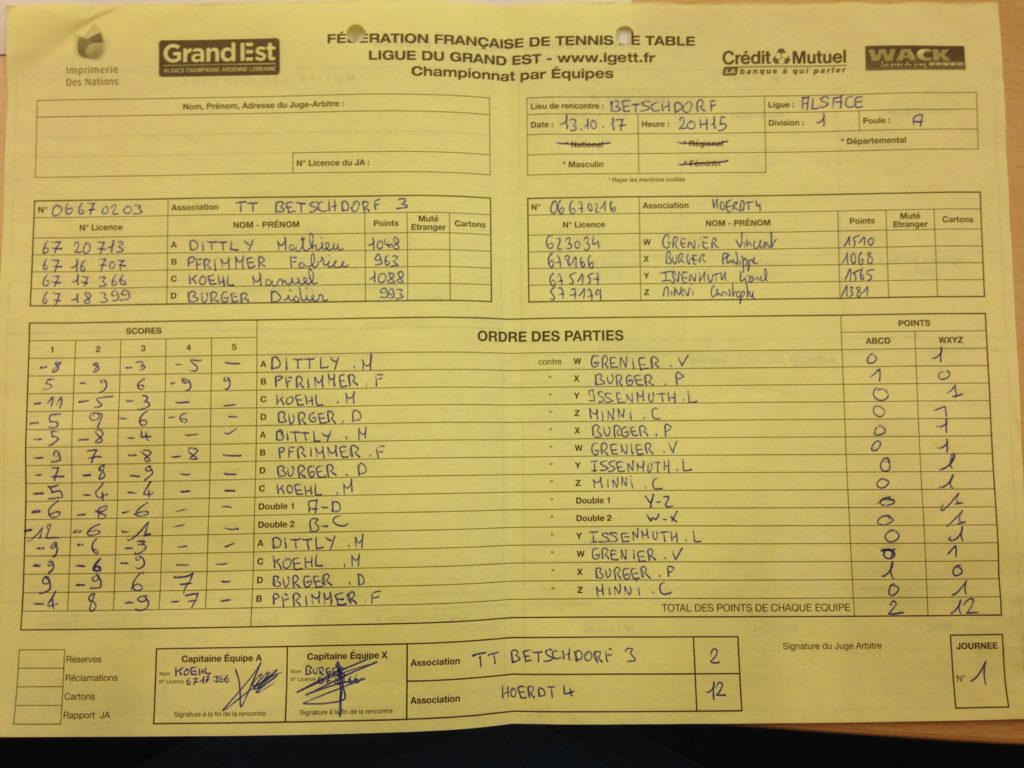 Imprimerie
Des Nations
GrandEst
ALSACE CHAMPAGNE-ARDENNE LORRAINE
FÉDÉRATION FRANÇAISE DE TENNIS DE TABLE
LIGUE DU GRAND EST - www.lgett.fr
Championnat par Équipes
Crédit Mutuel
LA banque à qui parler
WACK
Nom, Prénom, Adresse du Juge-Arbitre :
N° Licence du JA :
Lieu de rencontre : BETSCHDORF Ligue : ALSACE
Date : 13.10.17 Heure : 20H15 Division : 1 Poule : A
* National * Régional * Départemental
* Masculin * Féminin
* Rayer les mentions inutiles
N° 06670203 Association TT BETSCHDORF 3
N° Licence NOM - PRÉNOM Points Muté Etranger Cartons
67 20 713 A DITTLY Mathieu 1048
67 16 707 B PFRIMMER Fabrice 963
67 17 366 C KOEHL Manuel 1088
67 18 399 D BURGER Didier 993
N° 06670216 Association HOERDT 4
N° Licence NOM - PRÉNOM Points Muté Etranger Cartons
623034 W GRENIER Vincent 1510
678166 X BURGER Philippe 1068
675157 Y ISSENMUTH Lionel 1565
577179 Z MINNI Christophe 1381
SCORES ORDRE DES PARTIES POINTS
1 2 3 4 5 ABCD WXYZ
-8 8 -3 -5 - A DITTLY.M contre W GRENIER.V 0 1
5 -9 6 -9 9 B PFRIMMER.F " X BURGER.P 1 0
-11 -5 -3 - - C KOEHL.M " Y ISSENMUTH.L 0 1
-5 9 -6 -6 D BURGER.D " Z MINNI.C 0 1
-5 -8 -4 - - A DITTLY.M " X BURGER.P 0 1
-9 7 -8 -8 - B PFRIMMER.F " W GRENIER.V 0 1
-7 -8 -9 - - D BURGER.D " Y ISSENMUTH.L 0 1
-5 -4 -4 - - C KOEHL.M " Z MINNI.C 0 1
-6 -8 -6 - - Double 1 A-D " Double 1 Y-Z 0 1
-12 -6 -1 - - Double 2 B-C " Double 2 W-X 0 1
-9 -6 -3 - - A DITTLY.M " Y ISSENMUTH.L 0 1
-9 -6 -9 - - C KOEHL.M " W GRENIER.V 0 1
9 -9 6 7 - D BURGER.D " X BURGER.P 1 0
-4 8 -9 -7 - B PFRIMMER.F " Z MINNI.C 0 1
TOTAL DES POINTS DE CHAQUE EQUIPE 2 12
Réserves
Réclamations
Cartons
Rapport JA
Capitaine Équipe A
Nom KOEHL
N° Licence 6717366
Signature à la fin de la rencontre
Capitaine Équipe X
Nom BURGER
N° Licence
Signature à la fin de la rencontre
Association TT BETSCHDORF 3 2
Association HOERDT 4 12
Signature du Juge Arbitre
JOURNEE
N° 1